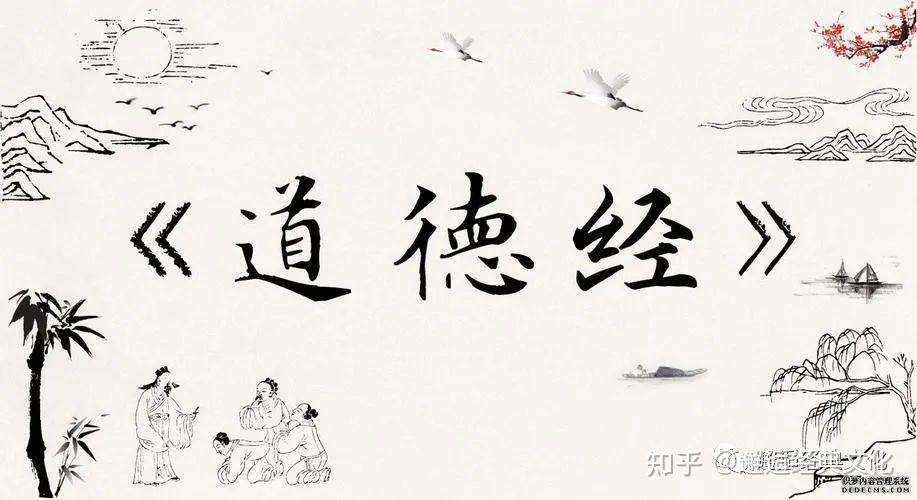 《道德经》
知乎 @邂逅经典文化
织梦内容管理系统
DEDECMS.COM